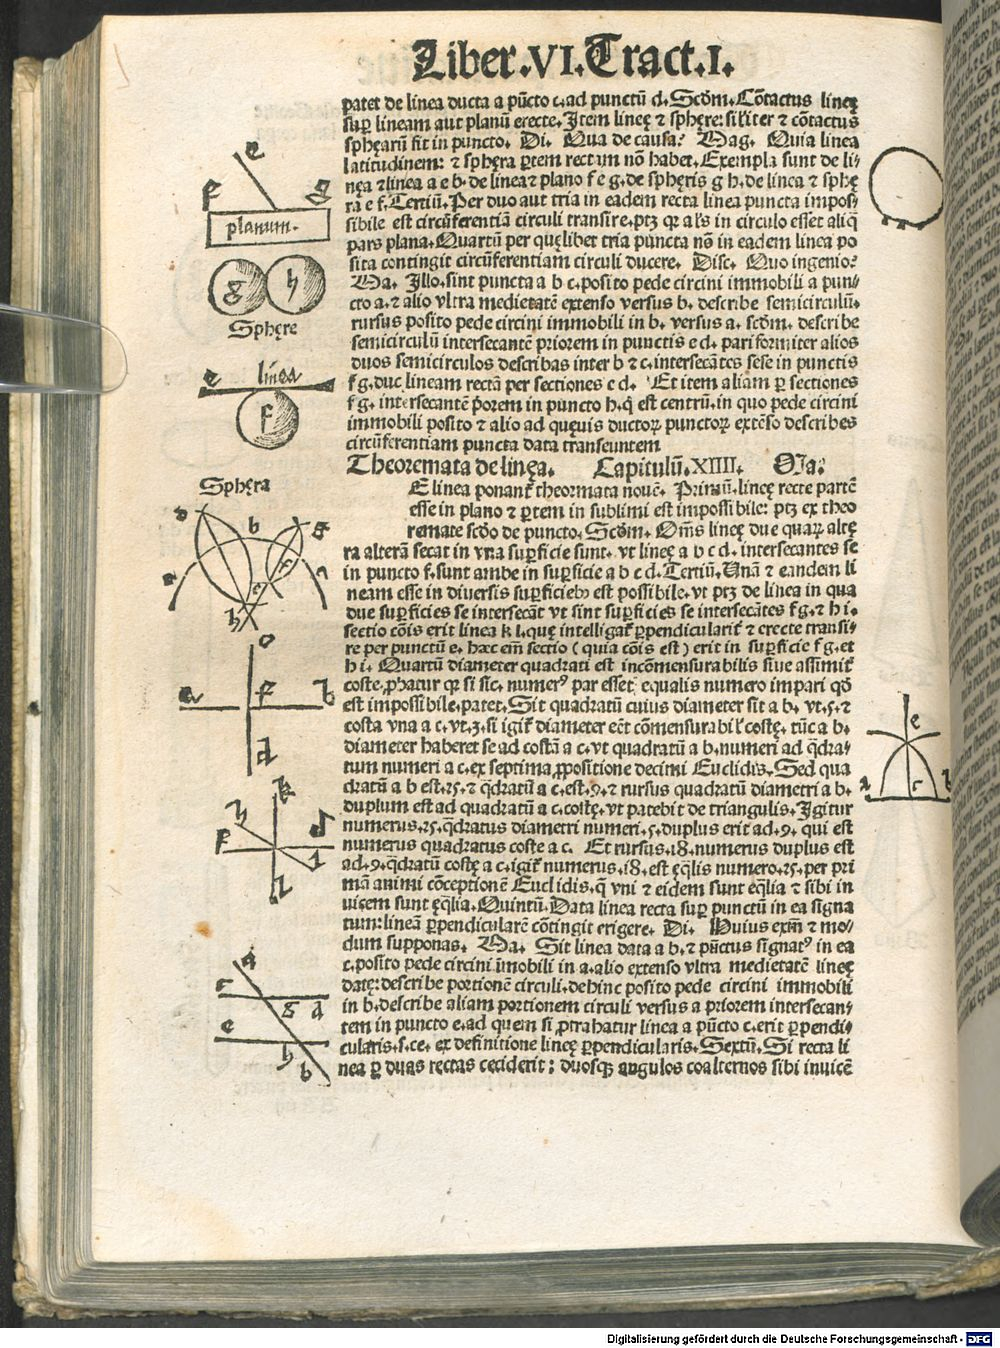 Liber.VI.Tract.I.
patet de linea ducta a pūcto c.ad punctū d.Scđm.Cōtactus lineę
suꝑ lineam aut planū erecte.Item lineę ⁊ sphęre: siĺiter ⁊ cōtactus
sphęarū fit in puncto. Di. Qua de causa? Mag. Quia linea
latitudinem: ⁊ sphęra ꝑtem rectam nō habet.Exempla sunt de li⸗
nęa ⁊linea a e b.de linea⁊ plano f e g.de sphęris g h.de linea ⁊ sphę
ra e f.Tertiū.Per duo aut tria in eadem recta linea puncta impos⸗
sibile est circūferentiā circuli transire.ptꝫ qꝛ aĺs in circulo esset aliq̄
pars plana.Quartū per quęlibet tria puncta nō in eadem linea po
sita contingit circūferentiam circuli ducere. Disc. Quo ingenio?
Ma. Illo.sint puncta a b c.posito pede circini immobili a pun⸗
cto a.⁊ alio vltra medietatē extenso versus b. describe semicirculū.
rursus posito pede circini immobili in b. versus a. scđm. describe
semicirculū intersecantē priorem in punctis e d. pariformiter alios
duos semicirculos describas inter b ⁊ c.intersecātes sese in punctis
f g.duc lineam rectā per sectiones e d. Et item aliam ꝑ sectiones
f g. intersecantē ṗorem in puncto h.q̄ est centrū.in quo pede circini
immobili posito ⁊ alio ad quęuis ductoꝝ punctoꝝ extēso describes
circūferentiam puncta data transeuntem
Theoremata de linęa. Capitulū.XIIII. Ma.
E linea ponant̄ theormata nouē. Primū.lineę recte partē
esse in plano ⁊ ꝑtem in sublimi est impossibile: ptꝫ ex theo
remate scđo de puncto.Scđm. Om̄s lineę due quaꝝ altę
ra alterā secat in vna suꝑficie sunt. vt lineę a b c d. intersecantes se
in puncto f.sunt ambe in suꝑficie a b c d.Tertiū.Vnā ⁊ eandem li
neam esse in diuersis suꝑficiebꝫ est possibile.vt ptꝫ de linea in qua
due suꝑficies se intersecāt vt sint suꝑficies se intersecātes f g.⁊ h i.
sectio cōis erit linea k l.quę intelligat̄ ꝑpendicularit̄ ⁊ erecte transi⸗
re per punctū e. hæc em̄ sectio (quia cōis est) erit in suꝑficie f g.et
h i. Quartū diameter quadrati est incōmensurabilis siue assimit̄
coste,ꝓhatur qꝛ si sic. numerꝰ par esset equalis numero impari qđ
est impossibile.patet.Sit quadratū cuius diameter sit a b. vt.5.⁊
costa vna a c.vt.3.si igit̄ diameter eēt cōmensurabiĺ costę. tūc a b.
diameter haberet se ad costā a c.vt quadratū a b.numeri ad q̄dra⸗
tum numeri a c.ex septima ꝓpositione decimi Euclidis.Sed qua
dratū a b est.25.⁊ q̄dratū a c.est.9.⁊ rursus quadratū diametri a b.
duplum est ad quadratū a c.costę.vt patebit de triangulis.Igitur
numerus.25.q̄dratus diametri numeri.5.duplus erit ad.9. qui est
numerus quadratus coste a c. Et rursus.18.numerus duplus est
ad.9.q̄dratū costę a c.igit̄ numerus.18.est ęq̄lis numero.25.per pri
mā animi cōceptionē Euclidis.q̄ vni ⁊ eidem sunt eq̄lia ⁊ sibi in
uicem sunt ęq̄lia.Quintū.Data linea recta suꝑ punctū in ea signa
tum:lineā ꝑpendicularē cōtingit erigere. Di. Huius exm̄ ⁊ mo⸗
dum supponas. Ma. Sit linea data a b.⁊ pūctus signatꝰ in ea
c.posito pede circini īmobili in a.alio extenso vltra medietatē lineę
datę:describe portionē circuli.dehinc posito pede circini immobili
in b.describe aliam portionem circuli versus a priorem intersecan⸗
tem in puncto e.ad quem si ꝓtrahatur linea a pūcto c.erit ꝑpendi⸗
cularis.s.ce. ex definitione lineę ꝑpendicularis.Sextū.Si recta li
nea ꝑ duas rectas ceciderit: duosqꝫ angulos coalternos sibi inuicē
e
f g
planum.
g h
Sphęre
e linea
f
Sphęra
d b g
a f c
e
h
c
a f b
d
k
h
f g
i
l
a
c
g d
e
h
b
e
a c b
Digitalisierung gefördert durch die Deutsche Forschungsgemeinschaft - DFG